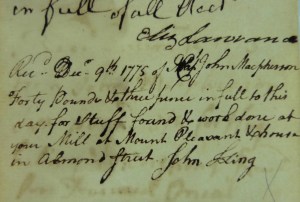 in full of all Acct
Eliz Lawrance
Recd Decr 9th 1775 of Capt John Macpherson
Forty Pounds & three pence in full to this
day for Stuff found & work done at
your Mill at Mount Pleasant & house
in Almond Street John King